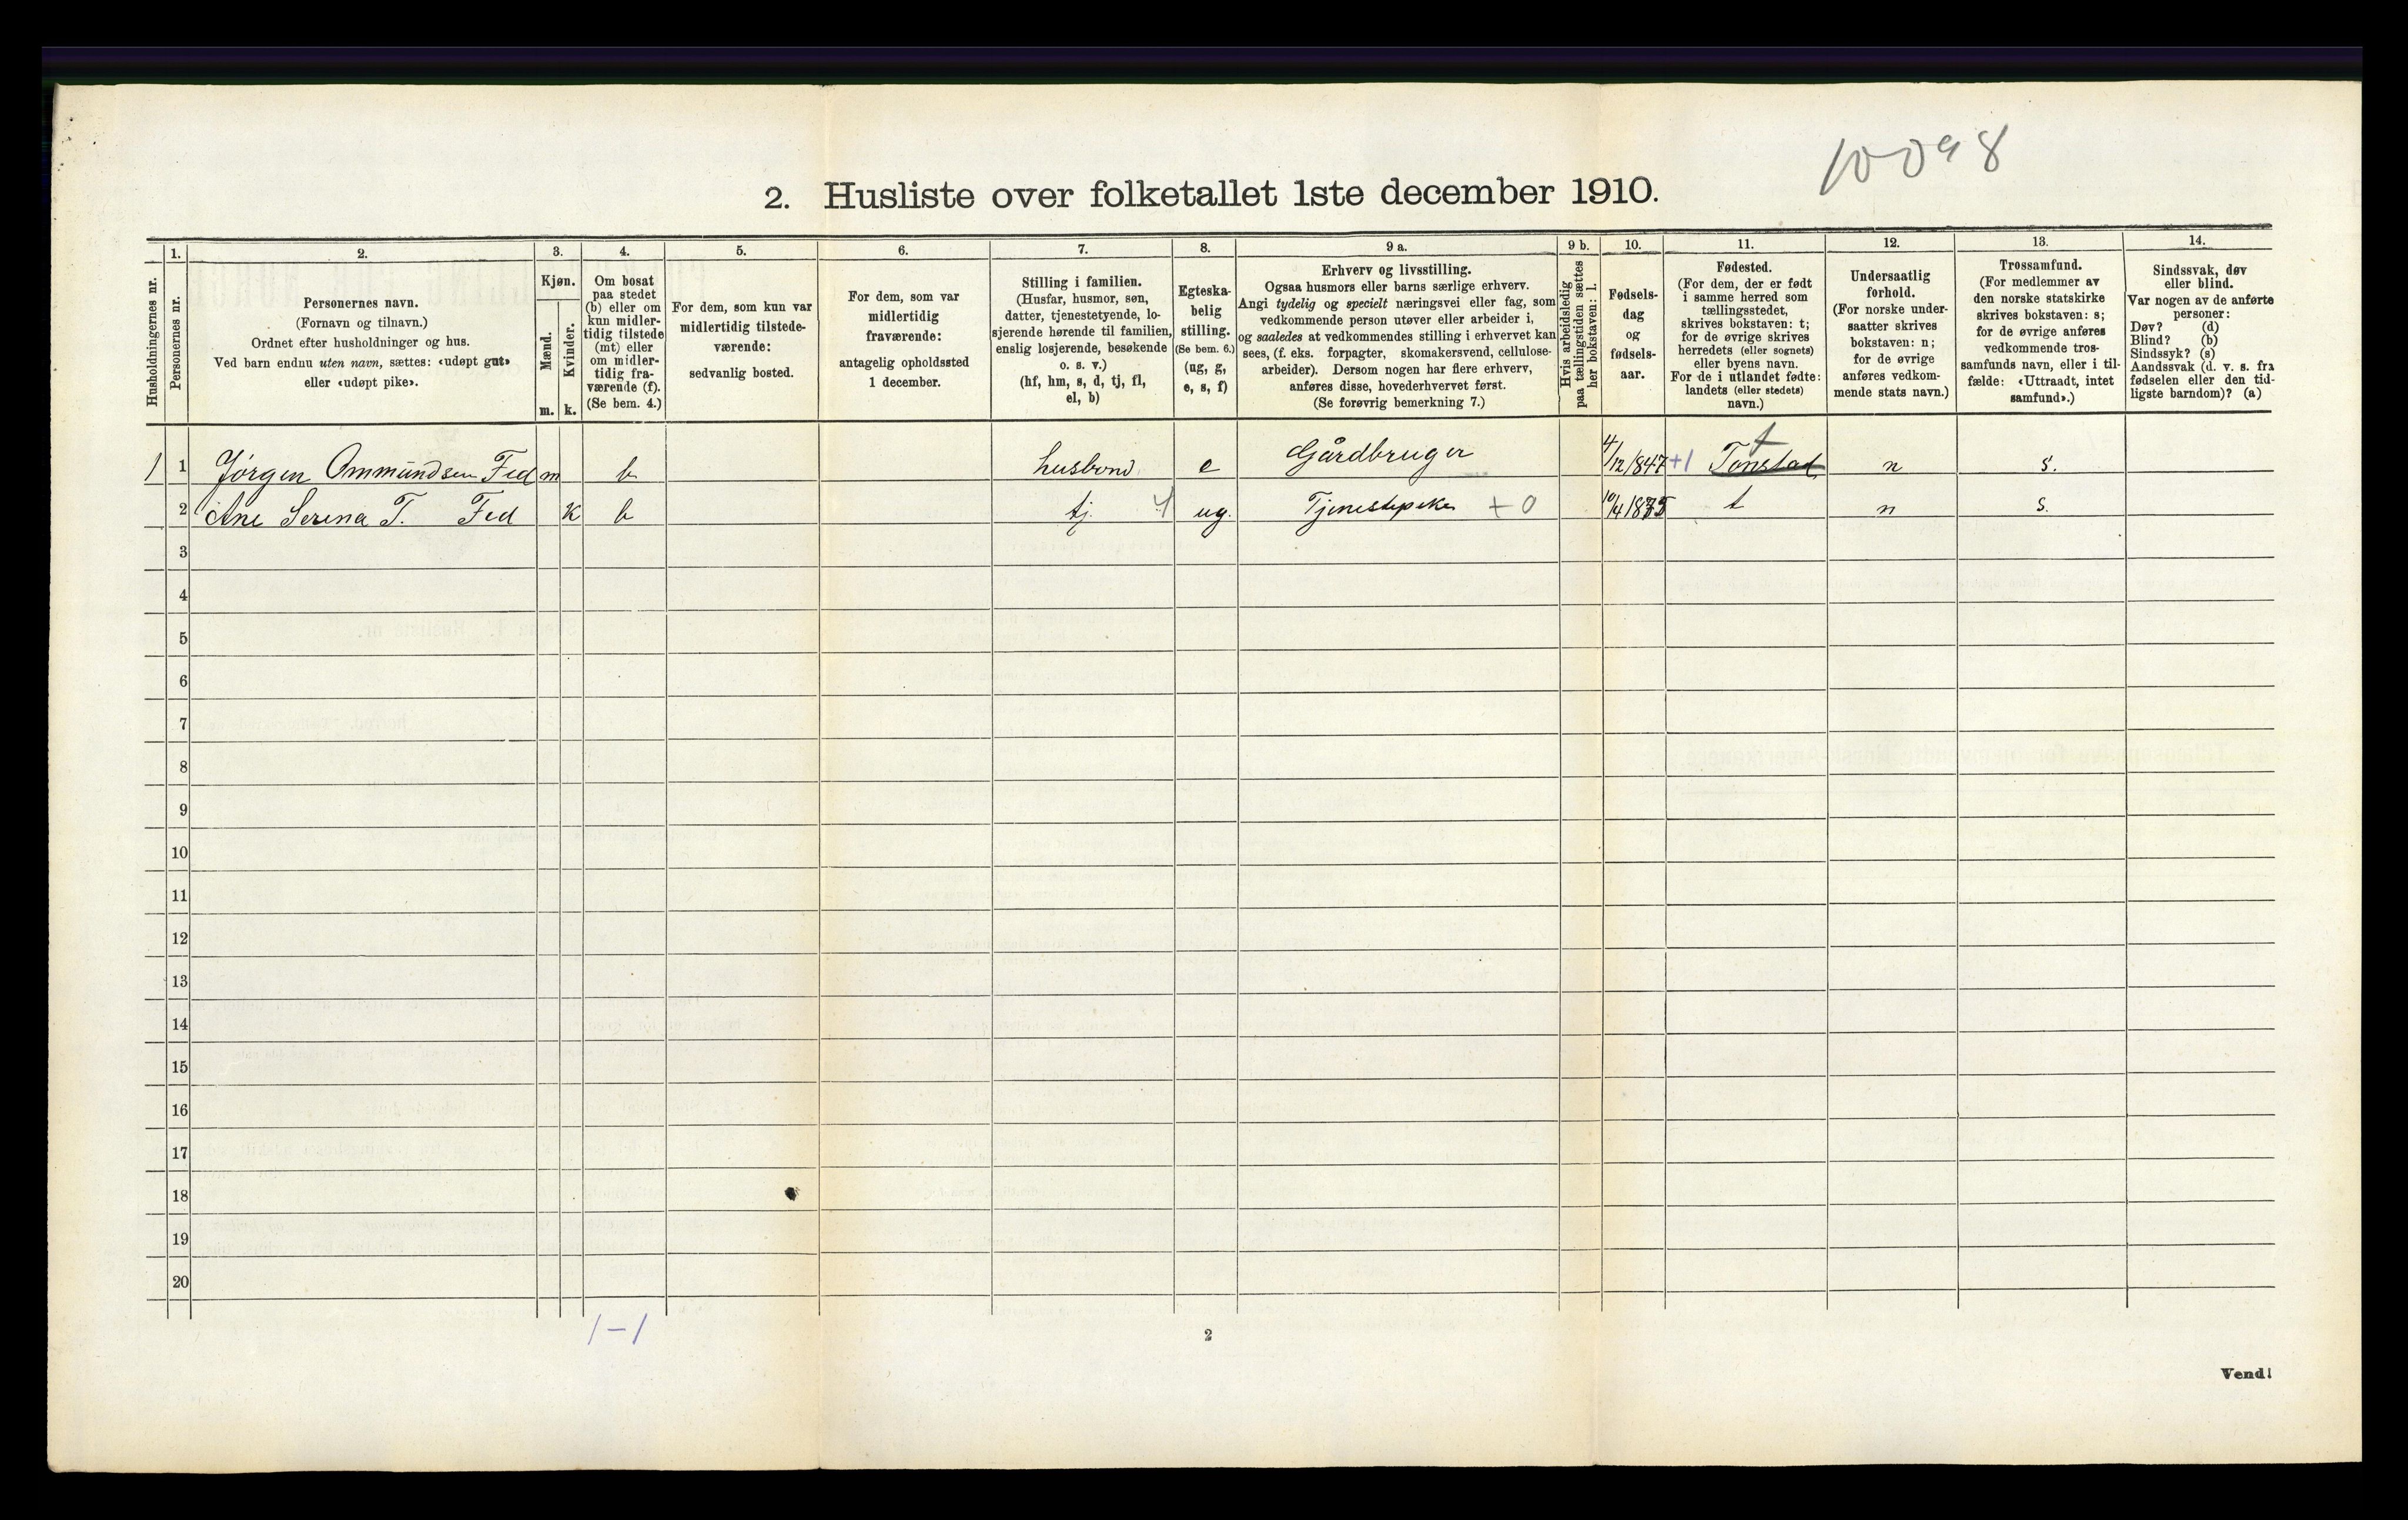 10098
2. Husliste over folketallet 1ste december 1910.
Husholdningernes nr.
1.
Personernes nr.
2.
Personernes navn.
(Fornavn og tilnavn.)
Ordnet efter husholdninger og hus.
Ved barn endnu uten navn, sættes: «udøpt gut»
eller «udøpt pike».
3.
Kjøn.
Mænd.
m.
Kvinder.
k.
4.
Om bosat
paa stedet
(b) eller om
kun midler-
tidig tilstede
(mt) eller
om midler-
tidig fra-
værende (f).
(Se bem. 4.)
5.
For dem, som kun var
midlertidig tilstede-
værende:
sedvanlig bosted.
6.
For dem, som var
midlertidig
fraværende:
antagelig opholdssted
1 december.
7.
Stilling i familien.
(Husfar, husmor, søn,
datter, tjenestetyende, lo-
sjerende hørende til familien,
enslig losjerende, besøkende
o. s. v.)
(hf, hm, s, d, tj, fl,
el, b)
8.
Egteska-
belig
stilling.
(Se bem. 6.)
(ug, g,
e, s, f)
9 a.
Erhverv og livsstilling.
Ogsaa husmors eller barns særlige erhverv.
Angi tydelig og specielt næringsvei eller fag, som
vedkommende person utøver eller arbeider i,
og saaledes at vedkommendes stilling i erhvervet kan
sees, (f. eks. forpagter, skomakersvend, cellulose-
arbeider). Dersom nogen har flere erhverv,
anføres disse, hovederhvervet først.
(Se forøvrig bemerkning 7.)
9 b.
Hvis arbeidsledig
paa tællingstiden sættes
her bokstaven: l.
10.
Fødsels-
dag
og
fødsels-
aar.
11.
Fødested.
(For dem, der er født
i samme herred som
tællingsstedet,
skrives bokstaven: t;
for de øvrige skrives
herredets (eller sognets)
eller byens navn.
For de i utlandet fødte:
landets (eller stedets)
navn.)
12.
Undersaatlig
forhold.
(For norske under-
saatter skrives
bokstaven: n;
for de øvrige
anføres vedkom-
mende stats navn.)
13.
Trossamfund.
(For medlemmer av
den norske statskirke
skrives bokstaven: s;
for de øvrige anføres
vedkommende tros-
samfunds navn, eller i til-
fælde: «Uttraadt, intet
samfund».)
14.
Sindssvak, døv
eller blind.
Var nogen av de anførte
personer:
Døv? (d)
Blind? (b)
Sindssyk? (s)
Aandssvak (d. v. s. fra
fødselen eller den tid-
ligste barndom)? (a)
1 1 Jørgen Ommundsen Fed m b husbond e Gårdbruger 4/12/847 +1 Tonstad t n s.
2 Ane Serina T. Fed K b tj. 4 ug. Tjenestepike +0 10/4/1875 t n s.
3
4
5
6
7
8
9
10
11
12
13
14
15
16
17
18
19
20
1-1
2
Vend!